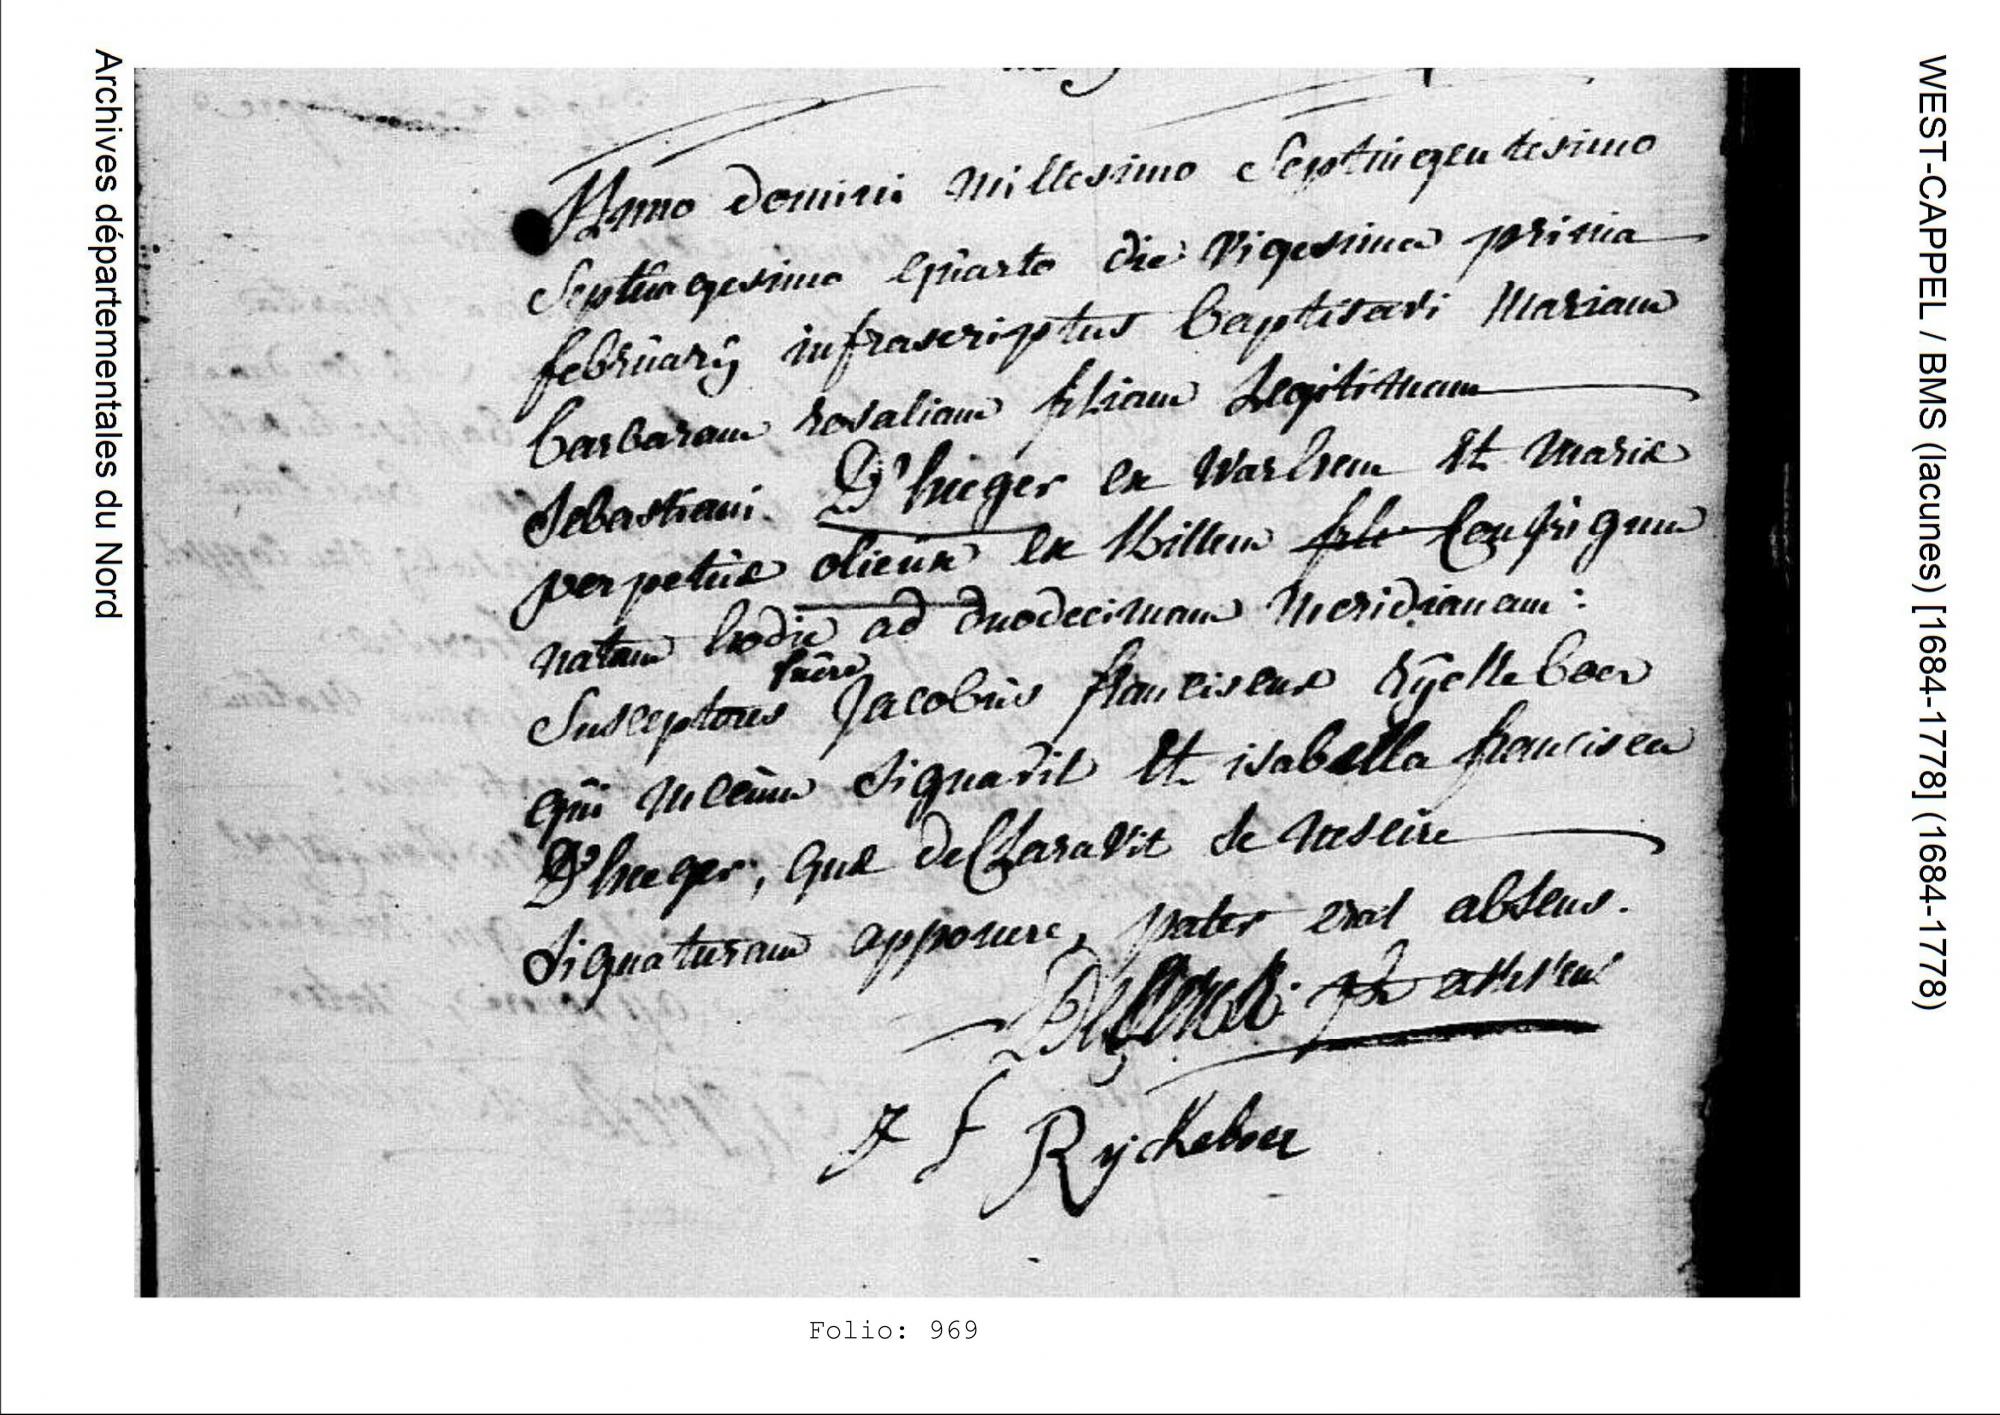 Archives départementales du Nord
WEST-CAPPEL / BMS (lacunes) [1684-1778] (1684-1778)
Anno Domini Millesimo Septingentesimo
Septuagesimo quarto die vigesima prima
februarÿ infrascriptus baptisavi Mariam
barbaram rosaliam filiam Legitimam
Sebastiani D'hueger ex Warhem et Mariæ
perpetuæ olieux ex Killem Conjugum
natam hodie ad duodecimam Meridianam:
fuêre
Susceptores Jacobus franciscus Rÿckeboer
qui mecum Signavit Et isabella francisca
D'hueger, quæ deClaravit se nescire
Signaturam apponere, pater erat absens.
J F Ryckeboer
Folio: 969